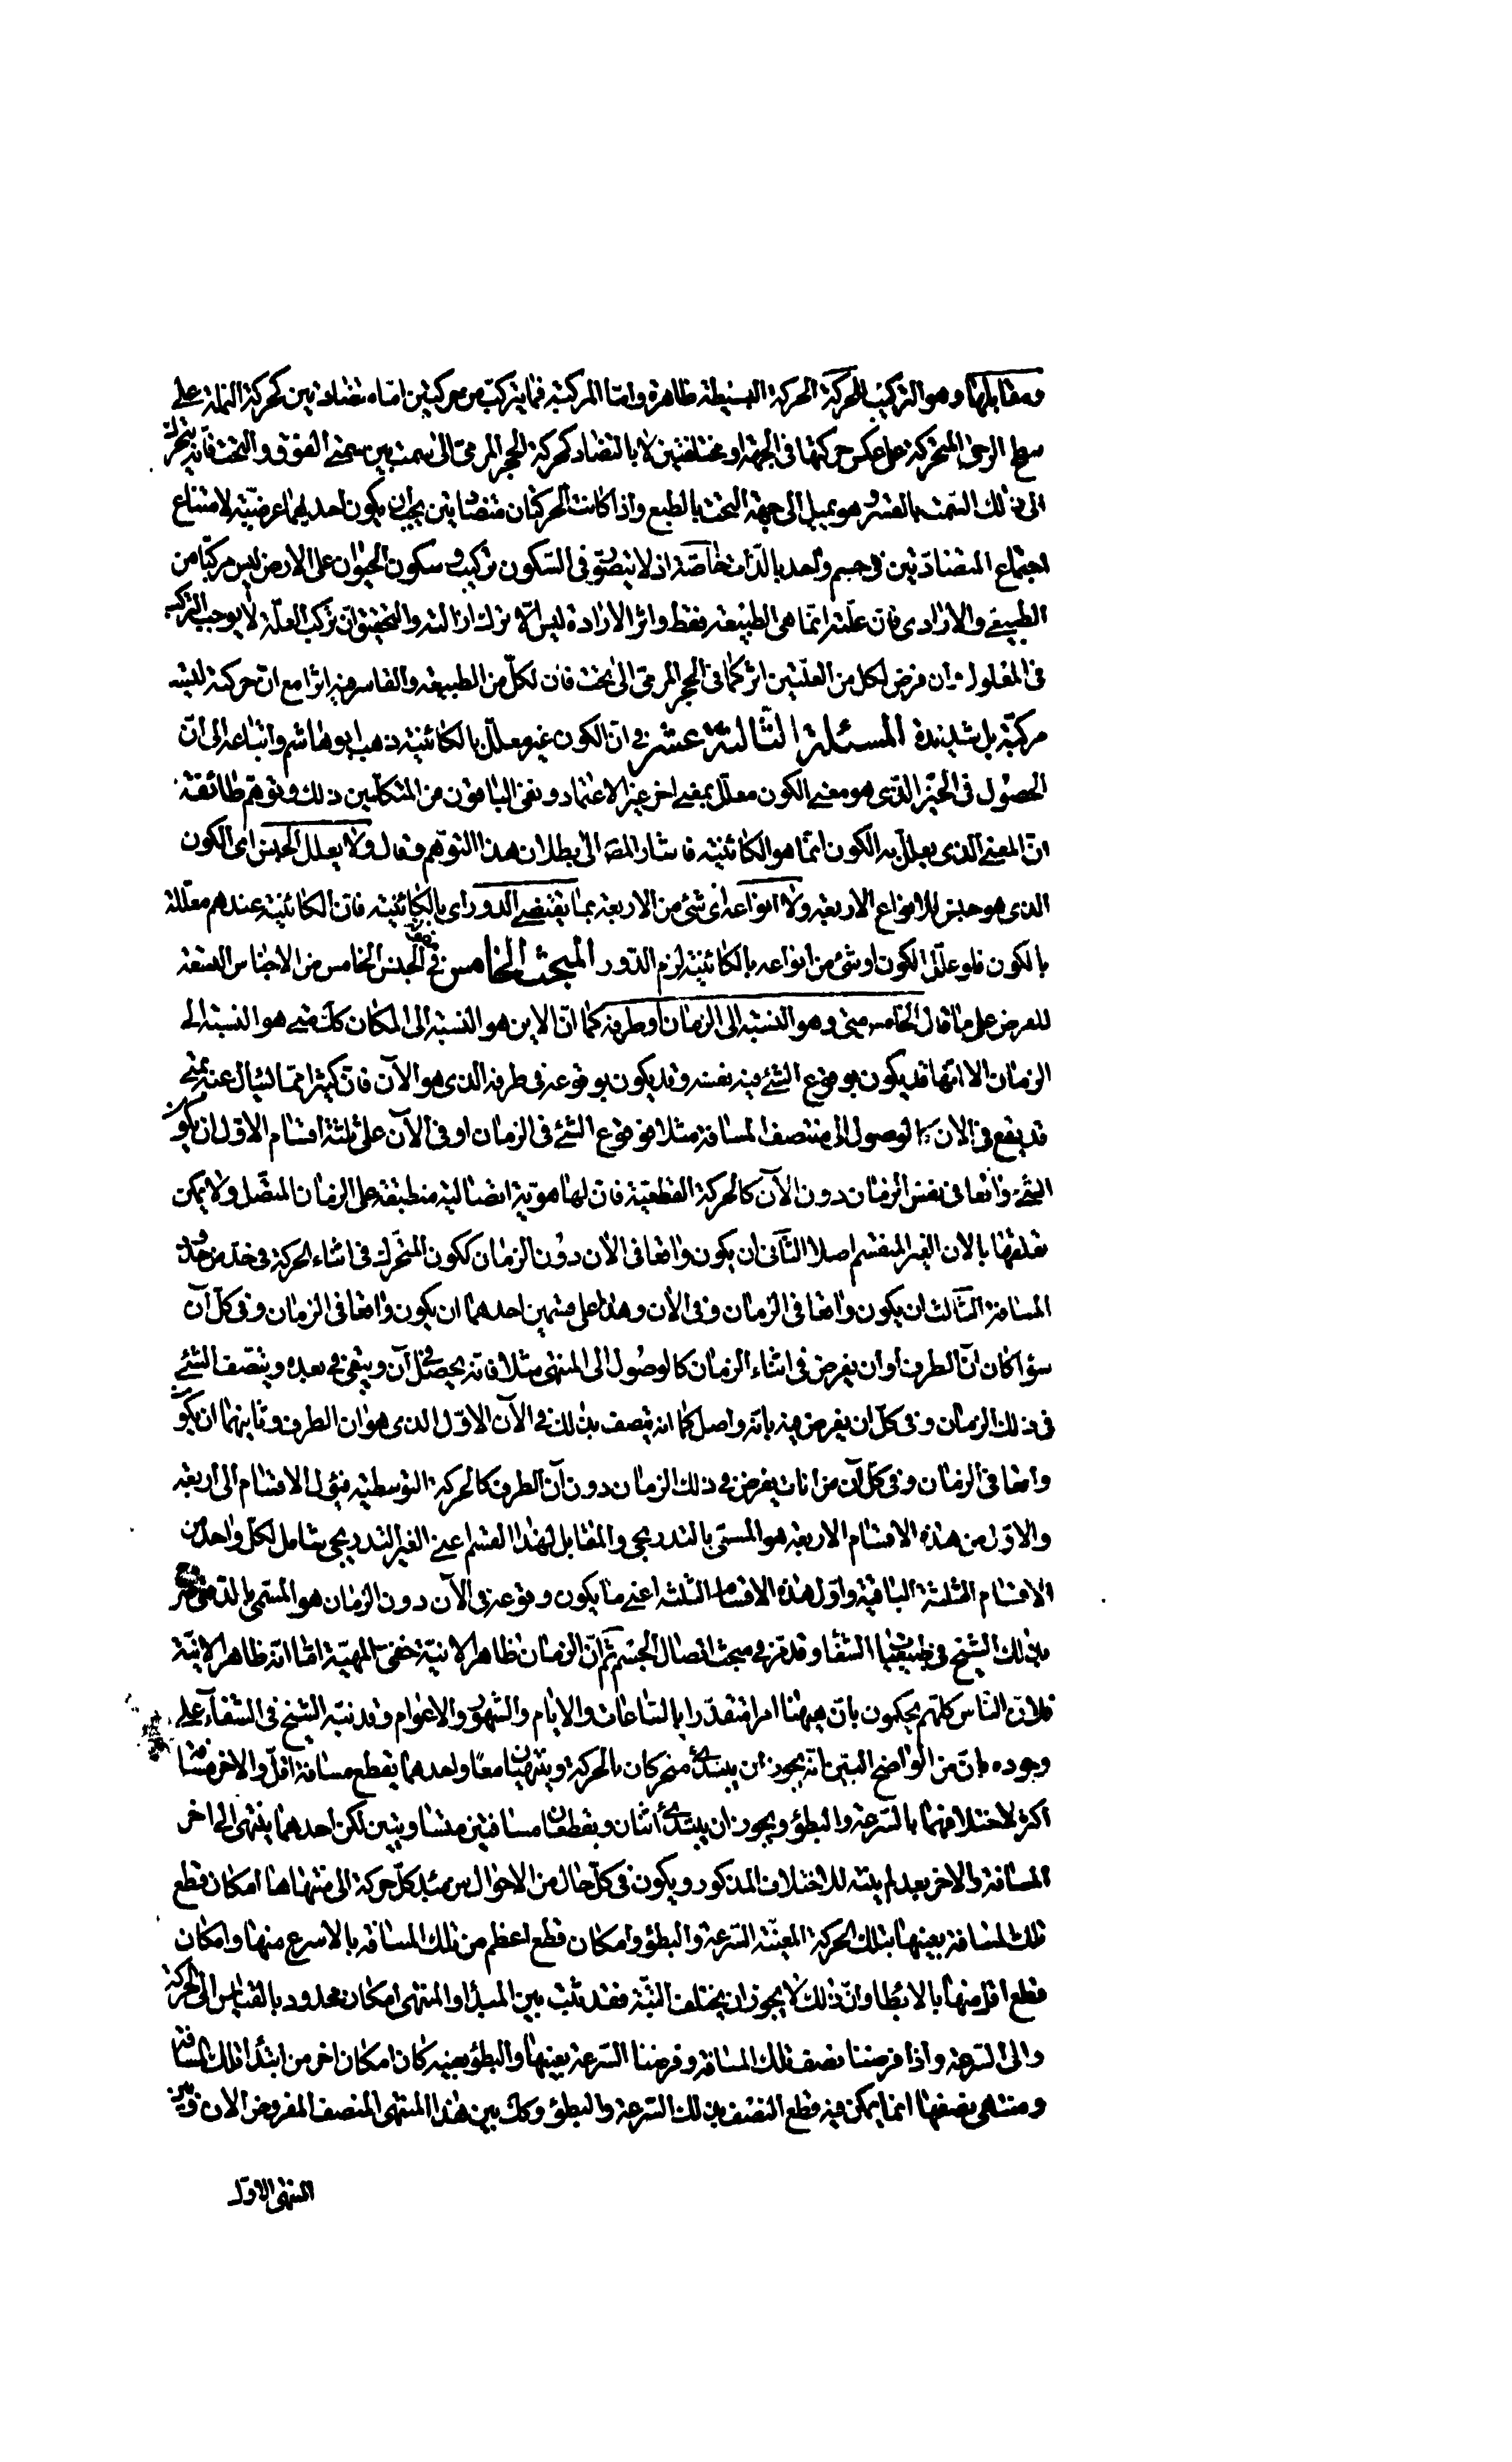 ومقابلها وهو التركيب للحركة الحركة البسيطة ظاهرة واما المركبة فما يتركب من حركتين اما متضادتين كحركة النملة على
سطح الرحى المتحركة على عكس حركتها فى الجهة او مختلفتين لا بالتضاد كحركة الحجر المرمى الى سمت بين سمتى الفوق والتحت فانه يتحرك
الى ذلك السمت بالقسر وهو يميل الى جهة التحت بالطبع واذا كانت الحركتان متضادتين يجب ان يكون احديهما عرضية لامتناع
اجتماع المتضادتين فى جسم واحد بالذات خاصة اذ لا يتصور فى السكون تركيب وسكون الحيوان على الارض ليس مركبا من
الطبيعى والارادى فان علته انما هى الطبيعة فقط واثر الارادة ليس الا ترك ازالته والتحقيق ان تركب العلة لا يوجب التركب
فى المعلول وان فرض لكل من العلتين اثر كما فى الحجر المرمى الى تحت فان لكل من الطبيعة والقاسر فيه اثرا مع ان حركته ليست
مركبة بل شديدة المسئلة الثالثة عشر فى ان الكون غير معلل بالكائنية ذهب ابو هاشم واتباعه الى ان
الحصول فى الحيز الذى هو معنى الكون معلل بمعنى اخر غير الاعتماد ونفى الباقون من المتكلمين ذلك وتوهم طائفة
ان المعنى الذى يعلل به الكون انما هو الكائنية فاشار المصه الى بطلان هذا التوهم وقال ولا يعلل الجنس اى الكون
الذى هو جنس للانواع الاربعة ولا انواعه اى شئ من الاربعة بما يقتضى الدور اى بالكائنية فان الكائنية عندهم معللة
بالكون فلو علل الكون او شئ من انواعه بالكائنية لزم الدور المبحث الخامس فى الجنس الخامس من الاجناس التسعة
للعرض على ما قال الخامس متى وهو النسبة الى الزمان او طرفه كما ان الاين هو النسبة الى المكان كك متى هو النسبة الى
الزمان الا انها قد يكون بوقوع الشئ فيه نفسه وقد يكون بوقوعه فى طرفه الذى هو الآن فان كثيرا مما يسئال عنه بمتى
قد يقع فى الان كالوصول الى منتصف المسافة مثلا فوقوع الشئ فى الزمان او فى الآن على ثلثة اقسام الاول ان يكون
الشئ واقعا فى نفس الزمان دون الآن كالحركة القطعية فان لها هوية اتصالية منطبقة على الزمان المتصل ولا يمكن
تعلقها بالان الغير المنقسم اصلا الثانى ان يكون واقعا فى الان دون الزمان ككون المتحرك فى اثناء الحركة فى حد من حدود
المسافة الثالث ان يكون واقعا فى الزمان وفى الان وهذا على قسمين احدهما ان يكون واقعا فى الزمان وفى كل آن
سواء كان آن الطرف او ان يفرض فى اثناء الزمان كالوصول الى المنتهى مثلا فانه يحصل فى آن ويبقى فى بعده ويتصف الشئ
فى ذلك الزمان وفى كل ان يفرض فيه بانه واصل كما انه يتصف بذلك فى الآن الاول الذى هو ان الطرف وثانيهما ان يكون
واقعا فى الزمان وفى كل آن من انات يفرض فى ذلك الزمان دون آن الطرف كالحركة التوسطية فيؤل الاقسام الى اربعة
والاول من هذه الاقسام الاربعة هو المسمى بالتدريجى والمقابل لهذا القسم اعنى الغير التدريجى شامل لكل واحد من
الاقسام الثلثة الباقية واول هذه الاقسام الثلثة اعنى ما يكون وقوعه فى الآن دون الزمان هو المسمى بالدفعى صرح
بذلك الشيخ فى طبيعيات الشفا وقد مر فى مبحث اتصال الجسم ثم ان الزمان ظاهر الانية خفى المهية اما انه ظاهر الانية
فلان الناس كلهم يحكمون بان ههنا امرا متقدرا بالساعات والايام والشهور والاعوام وقد نبه الشيخ فى الشفآء على
وجوده بان من الواضح البين انه يجوز ان يبتدئ متحركان بالحركة وينتهيان معا واحدهما يقطع مسافة اقل والاخر مسافة
اكثر لاختلافهما بالسرعة والبطؤ ويجوز ان يبتدئ اثنان ويقطعان مسافتين متساويتين لكن احدهما ينتهى الى اخر
المسافة والاخر بعد لم ينته للاختلاف المذكور ويكون فى كل حال من الاحوال من مبدء كل حركة الى منتهاها امكان قطع
تلك المسافة بعينها بتلك الحركة المعينة السرعة والبطؤ وامكان قطع اعظم من تلك المسافة بالاسرع منها وامكان
قطع اقل منها بالابطا وان ذلك لا يجوز ان يختلف البتة فقد ثبت بين المبدا والمنتهى امكان محدود بالقياس الى الحركة
والى السرعة واذا فرضنا نصف تلك المسافة وفرضنا السرعة بعينها والبطؤ بعينه كان امكان اخر من ابتداء تلك المسافة
ومنتهى نصفها انما يمكن فيه قطع النصف بذلك السرعة والبطؤ وكك بين هذا المنتهى المنصف المفروض الان وبين
المنتهى الاول